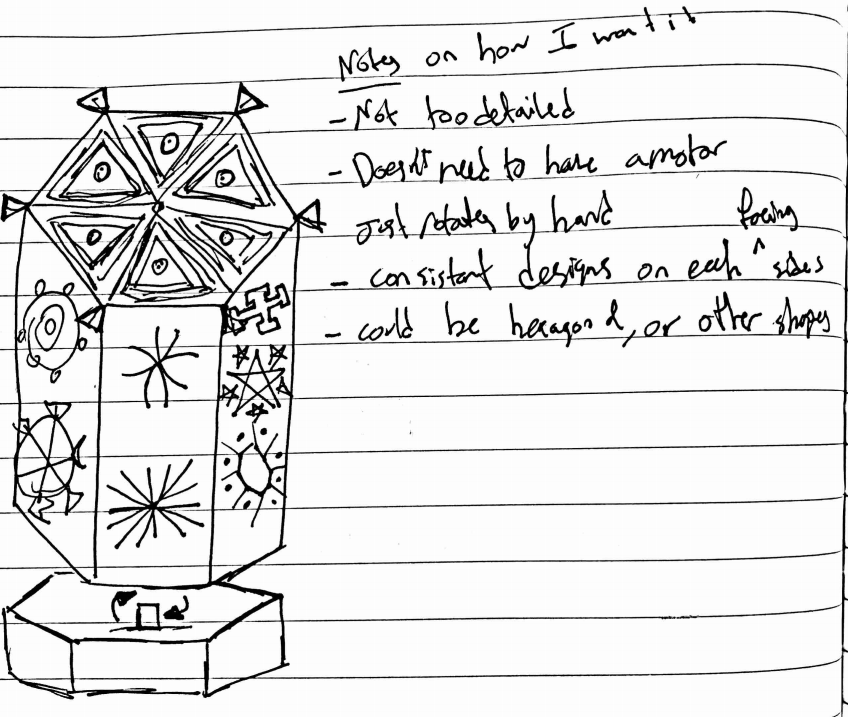 Notes on how I want it
- Not too detailed
- Doesn't need to have a motor
Just rotates by hand
- consistant designs on each ^facing sides
- could be hexagonal, or other shapes